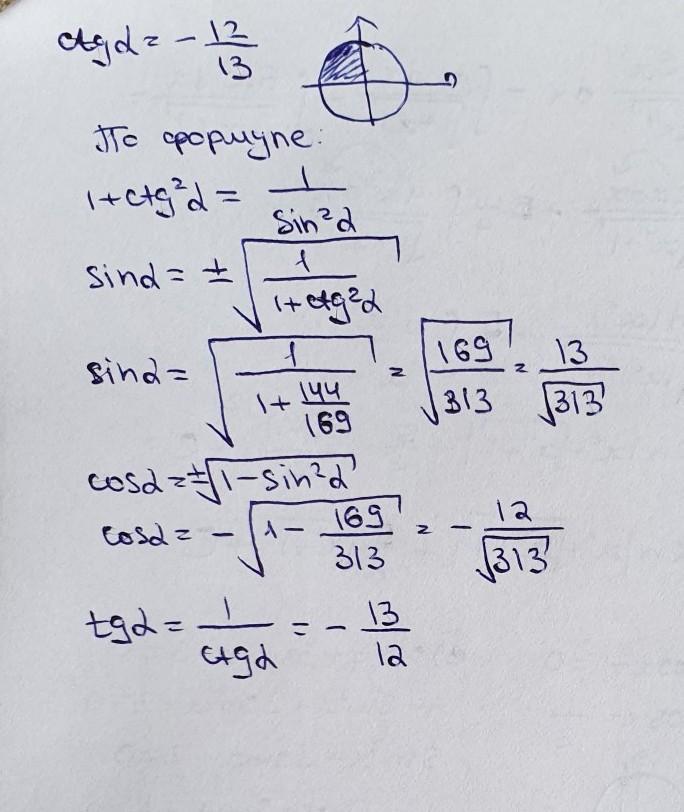 ctgα = - 12/13
По формуле:
1+ctg²α = 1/sin²α
sinα = ± √(1/(1+ctg²α))
sinα = √(1/(1+144/169)) = √(169/313) = 13/√313
cosα = ±√(1-sin²α)
cosα = - √(1 - 169/313) = - 12/√313
tgα = 1/ctgα = - 13/12